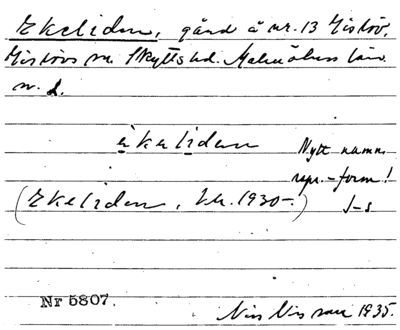 Ekeliden, gård å nr. 13 Gislöv,
Gislövs sn. Skytts hd. Malmöhus län
n. d.
èkelìden
Nytt namn.
rspr.-form!
(Ekeliden, Jr. 1930-.)
J-s
Nr 5807.
Nils Nilsson 1935.